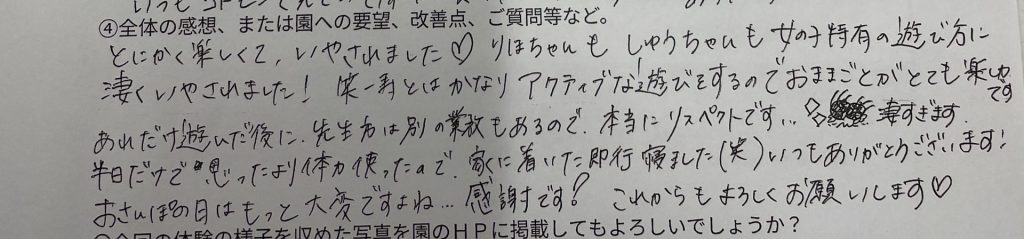 ④全体の感想、または園への要望、改善点、ご質問等など。
とにかく楽しくて、いやされました♡ りほちゃんも しゅうちゃんも 女の子特有の遊び方に
凄くいやされました! 笑一寿とはかなり アクティブな遊びをするのでおままごとがとても楽しかったです
あれだけ遊んだ後に、先生方は別の業務もあるので、本当にリスペクトです... 凄すぎます
半日だけで思ったより体力使ったので、家に着いた即行寝ました(笑)いつもありがとうございます!
おさんぽの日はもっと大変ですよね... 感謝です! これからもよろしくお願いします♡
今回の体験の様子を収めた写真を園のHPに掲載してもよろしいでしょうか?